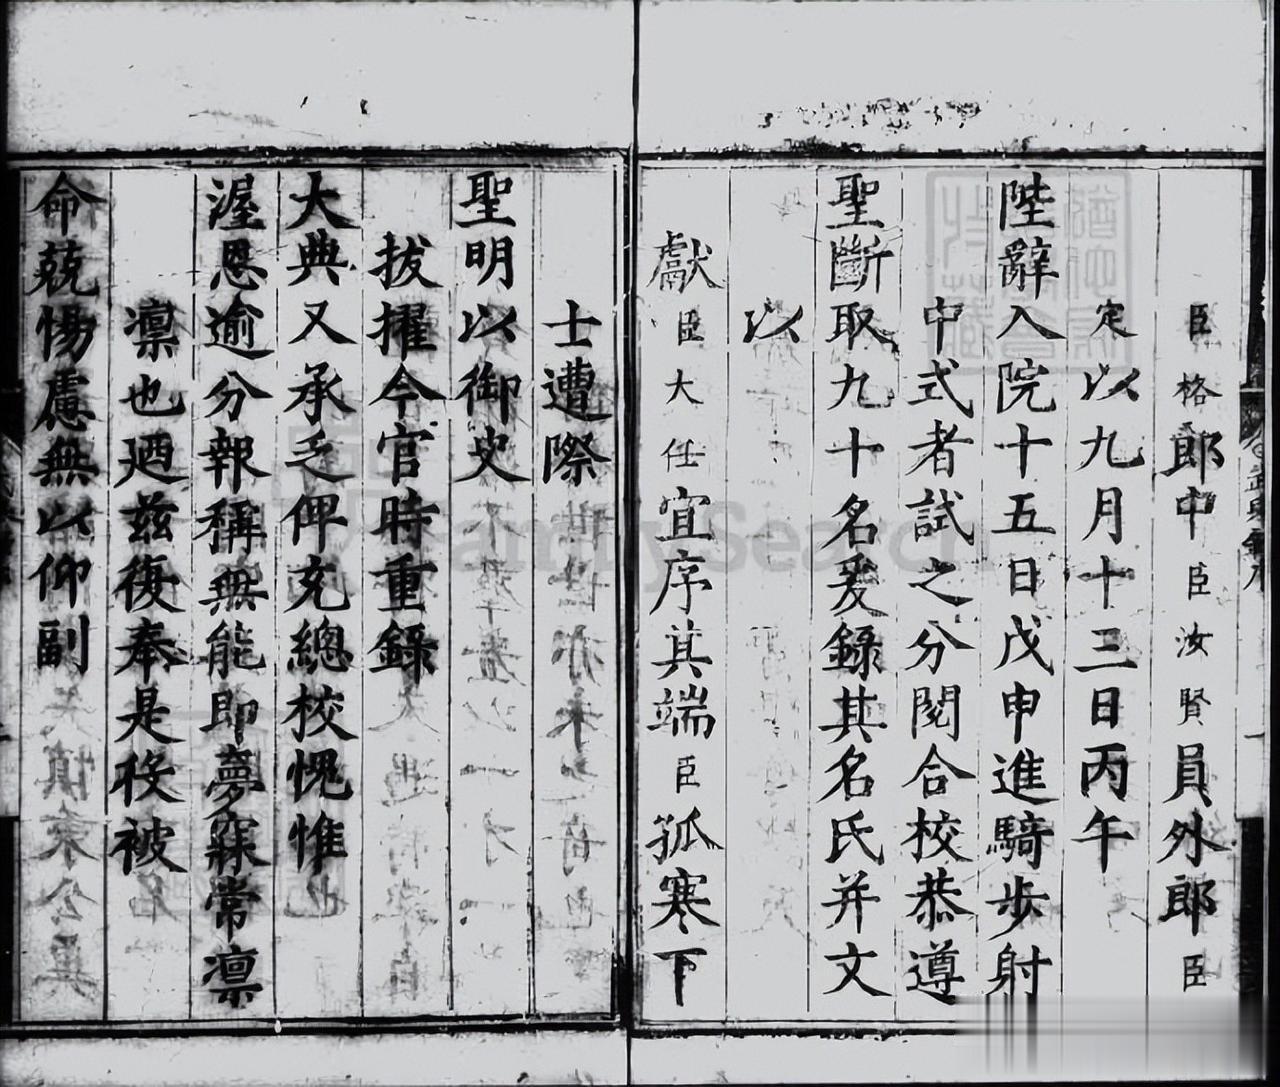 臣格郎中臣汝賢員外郎臣
定以九月十三日丙午
陛辭入院十五日戊申進騎步射
中式者試之分閱合校恭遵
聖斷取九十名爰錄其名氏并文
以
獻臣大任宜序其端臣孤寒下
士遭際
聖明以御史
拔擢今官時重錄
大典又承乏俾充總校愧惟
渥恩逾分報稱無能即夢寐常凜
凜也廼茲復奉是役被
命兢惕慮無以仰副
FamilySearch